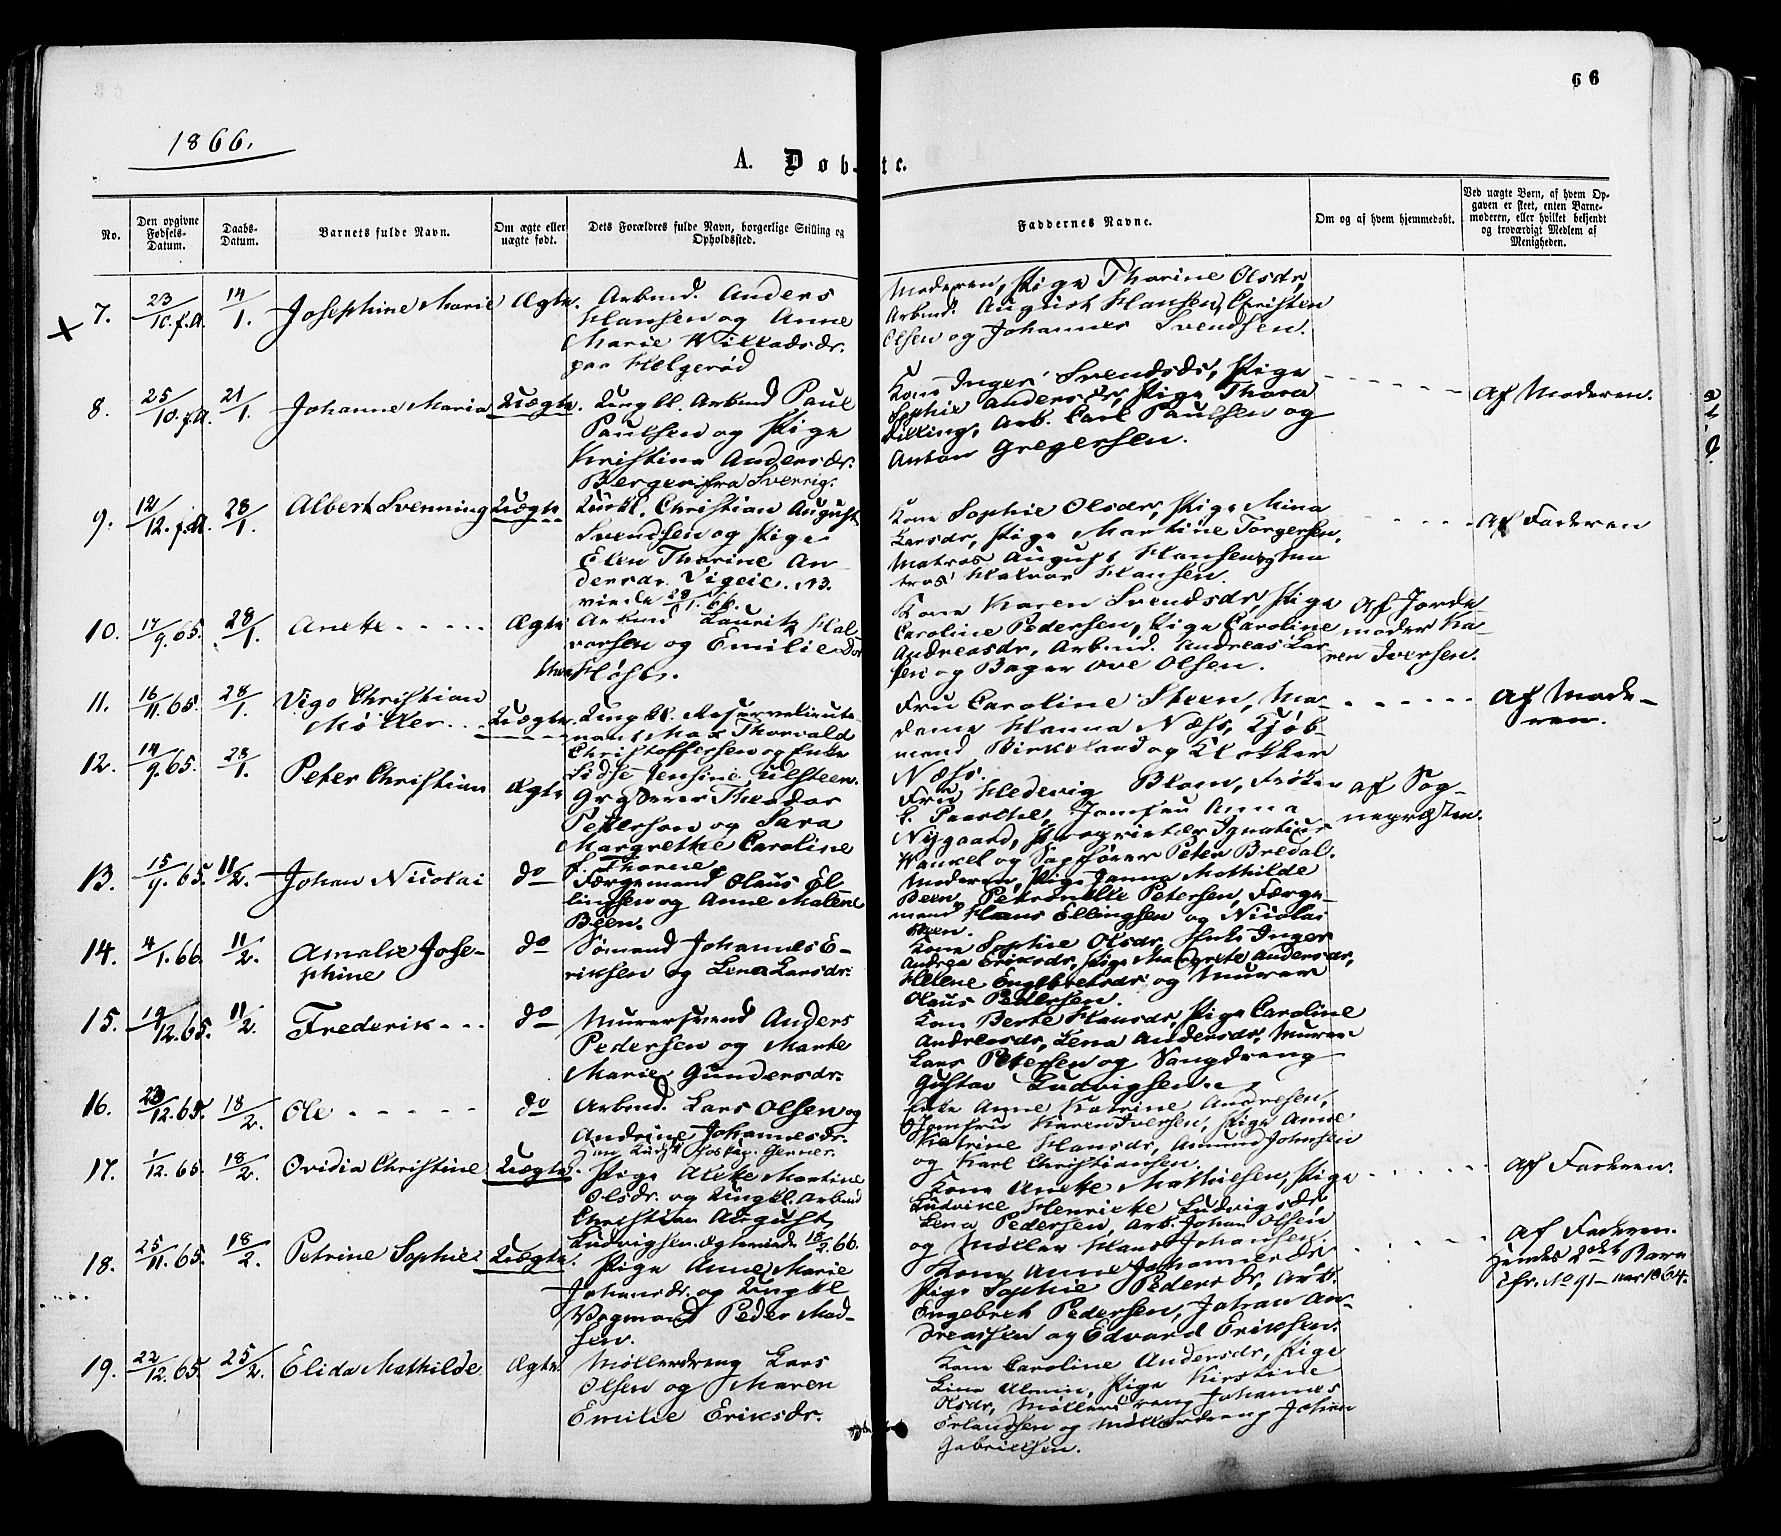 66
1866.
A. Døbte.
No.
Den opgivne Fødsels-Datum.
Daabs-Datum.
Barnets fulde Navn.
Om ægte eller uægte født.
Dets Forældres fulde Navn, borgerlige Stilling og Opholdssted.
Faddernes Navne.
Om og af hvem hjemmedøbt.
Ved uægte Børn, af hvem Opgaven er skeet, enten Barnemoderen, eller hvilket bekjendt og troværdigt Medlem af Menigheden.
7. 23/10. f.A. 14/1. Josephine Marie Ægte.
Arbmd. Anders
Hansen og Anne
Marie Willadsdr.
paa Helgerød
Moderen, Pige Thorine Olsdr,
Arbmd. August Hansen, Christen
Olsen og Johannes Svendsen.
8. 25/10. f.A. 21/1. Johanne Maria Uægte.
Ungkl. Arbmd Paul
Paulsen og Pige
Kristina Andersdr.
Berger fra Sverrig.
Kone Inger Svendsdr, Pige
Sophie Andersdr, Pige Thora
Killing, Arb. Carl Paulsen og
Anton Gregersen.
Af Moderen.
9. 12/12. f.A. 28/1. Albert Svenning Uægte
Ungkl. Christian August
Svendsen og Pige
Elen Thorine An-
dersdr. Vigeie. NB.
viede 28/1. 66.
Kone Sophie Olsdr, Pige Mina
Larsdr, Pige Martine Torgersen,
Matros August Hansen og Ma
tros Halvor Hansen.
Af Faderen
10. 17/9. 65. 28/1. Anette Ægte
Arbmd Lauritz Hal-
vorsen og Emilie
Høst.
Kone Karen Svendsdr, Pige
Caroline Pedersen, Pige Caroline
Andreasdr, Arbmd. Andreas Lar
sen og Bager Ove Olsen.
Af Jorde-
moder Ka-
ren Iversen.
11. 16/11. 65. 28/1. Vigo Christian
Møller Uægte
Ungkl. Reservelieute-
nant Max Thorvald
Christoffersen og Enke
Sidse Jensine Ulsteen.
Fru Caroline Steen, Ma-
dame Hanna Næss, Kjøb-
mand Birkeland og Klokker
Næss.
Af Mode-
ren.
12. 14/9. 65. 28/1. Peter Christian Ægte
Theodor
Petterson og Sara
Margrethe Caroline
f. Thorne.
Fru Hedevig Blom, Frøken
Jomfru Anna
Nygaard, Proprietær Ignatius
Wankel og Sagfører Peter Bredal.
af Sog-
nepræsten.
13. 15/9. 65. 11/2. Johan Nicolai do
Færgemand Olaus El-
lingsen og Anne Malene
Been.
Moderen, Pige Janna Mathilde
Been, Petronelle Petersen, Færge
mand Hans Ellingsen og Nicolai
Been.
14. 4/1. 66. 11/2. Amalie Jose-
phine do
Sømand Johannes E-
riksen og Lena Larsdr.
Kone Sophie Olsdr, Enke Inger
Andrea Eriksdr, Pige Margrete Andersdr,
Helene Engebretsdr og Murer
Olaus Pedersen.
15. 19/12. 65. 11/2. Frederik do
Murersvend Anders
Pedersen og Marte
Marie Gundersdr.
Kone Berte Hansdr, Pige Caroline
Andreasdr, Lena Andersdr, Murer
Lars Petersen og Vangdreng
Gustav Ludvigsen.
16. 23/12. 65. 18/2. Ole do
Arbmd. Lars Olsen og
Andrine Johannesdr.
Enke Anne Katrine Andresen,
Jomfru Karen Iversen, Pige Anne
Katrine Hansdr, Amund Johnsen
og Karl Christiansen.
17. 1/12. 65. 18/2. Ovidia Christine Uægte.
Pige Anette Martine
Olsdr. og Ungkl. Arbmd
Christian August
Ludvigsen. Ægteviede 18/2. 66.
Kone Anette Mathiesen, Pige
Ludvike Henriette Ludvigsdr,
Lena Pedersen, Arb. Johan Olsen
og Møller Hans Johansen.
Af Faderen.
18. 25/11. 65. 18/2. Petrine Sophie Uægte
Pige Anne Marie
Johansdr. og Ungkl
Vogmand Peder Mad-
sen.
Kone Anne Johannesdr
Pige Sophie Pedersdr, Arb.
Engebret Pedersen, Johan An-
dreassen og Edvard Eriksen.
Af Faderen.
Hendes 2det Barn
cfr. No 91 - 1864.
19. 22/12. 65. 25/2. Elida Mathilde Ægte
Møllerdreng Lars
Olsen og Maren
Emilie Eriksdr.
Kone Caroline Andersdr, Pige
Lina Pige Kirstine
Olsdr, Møllerdreng Johannes
Erlandsen og Møllerdreng Johan
Gabrielsen.